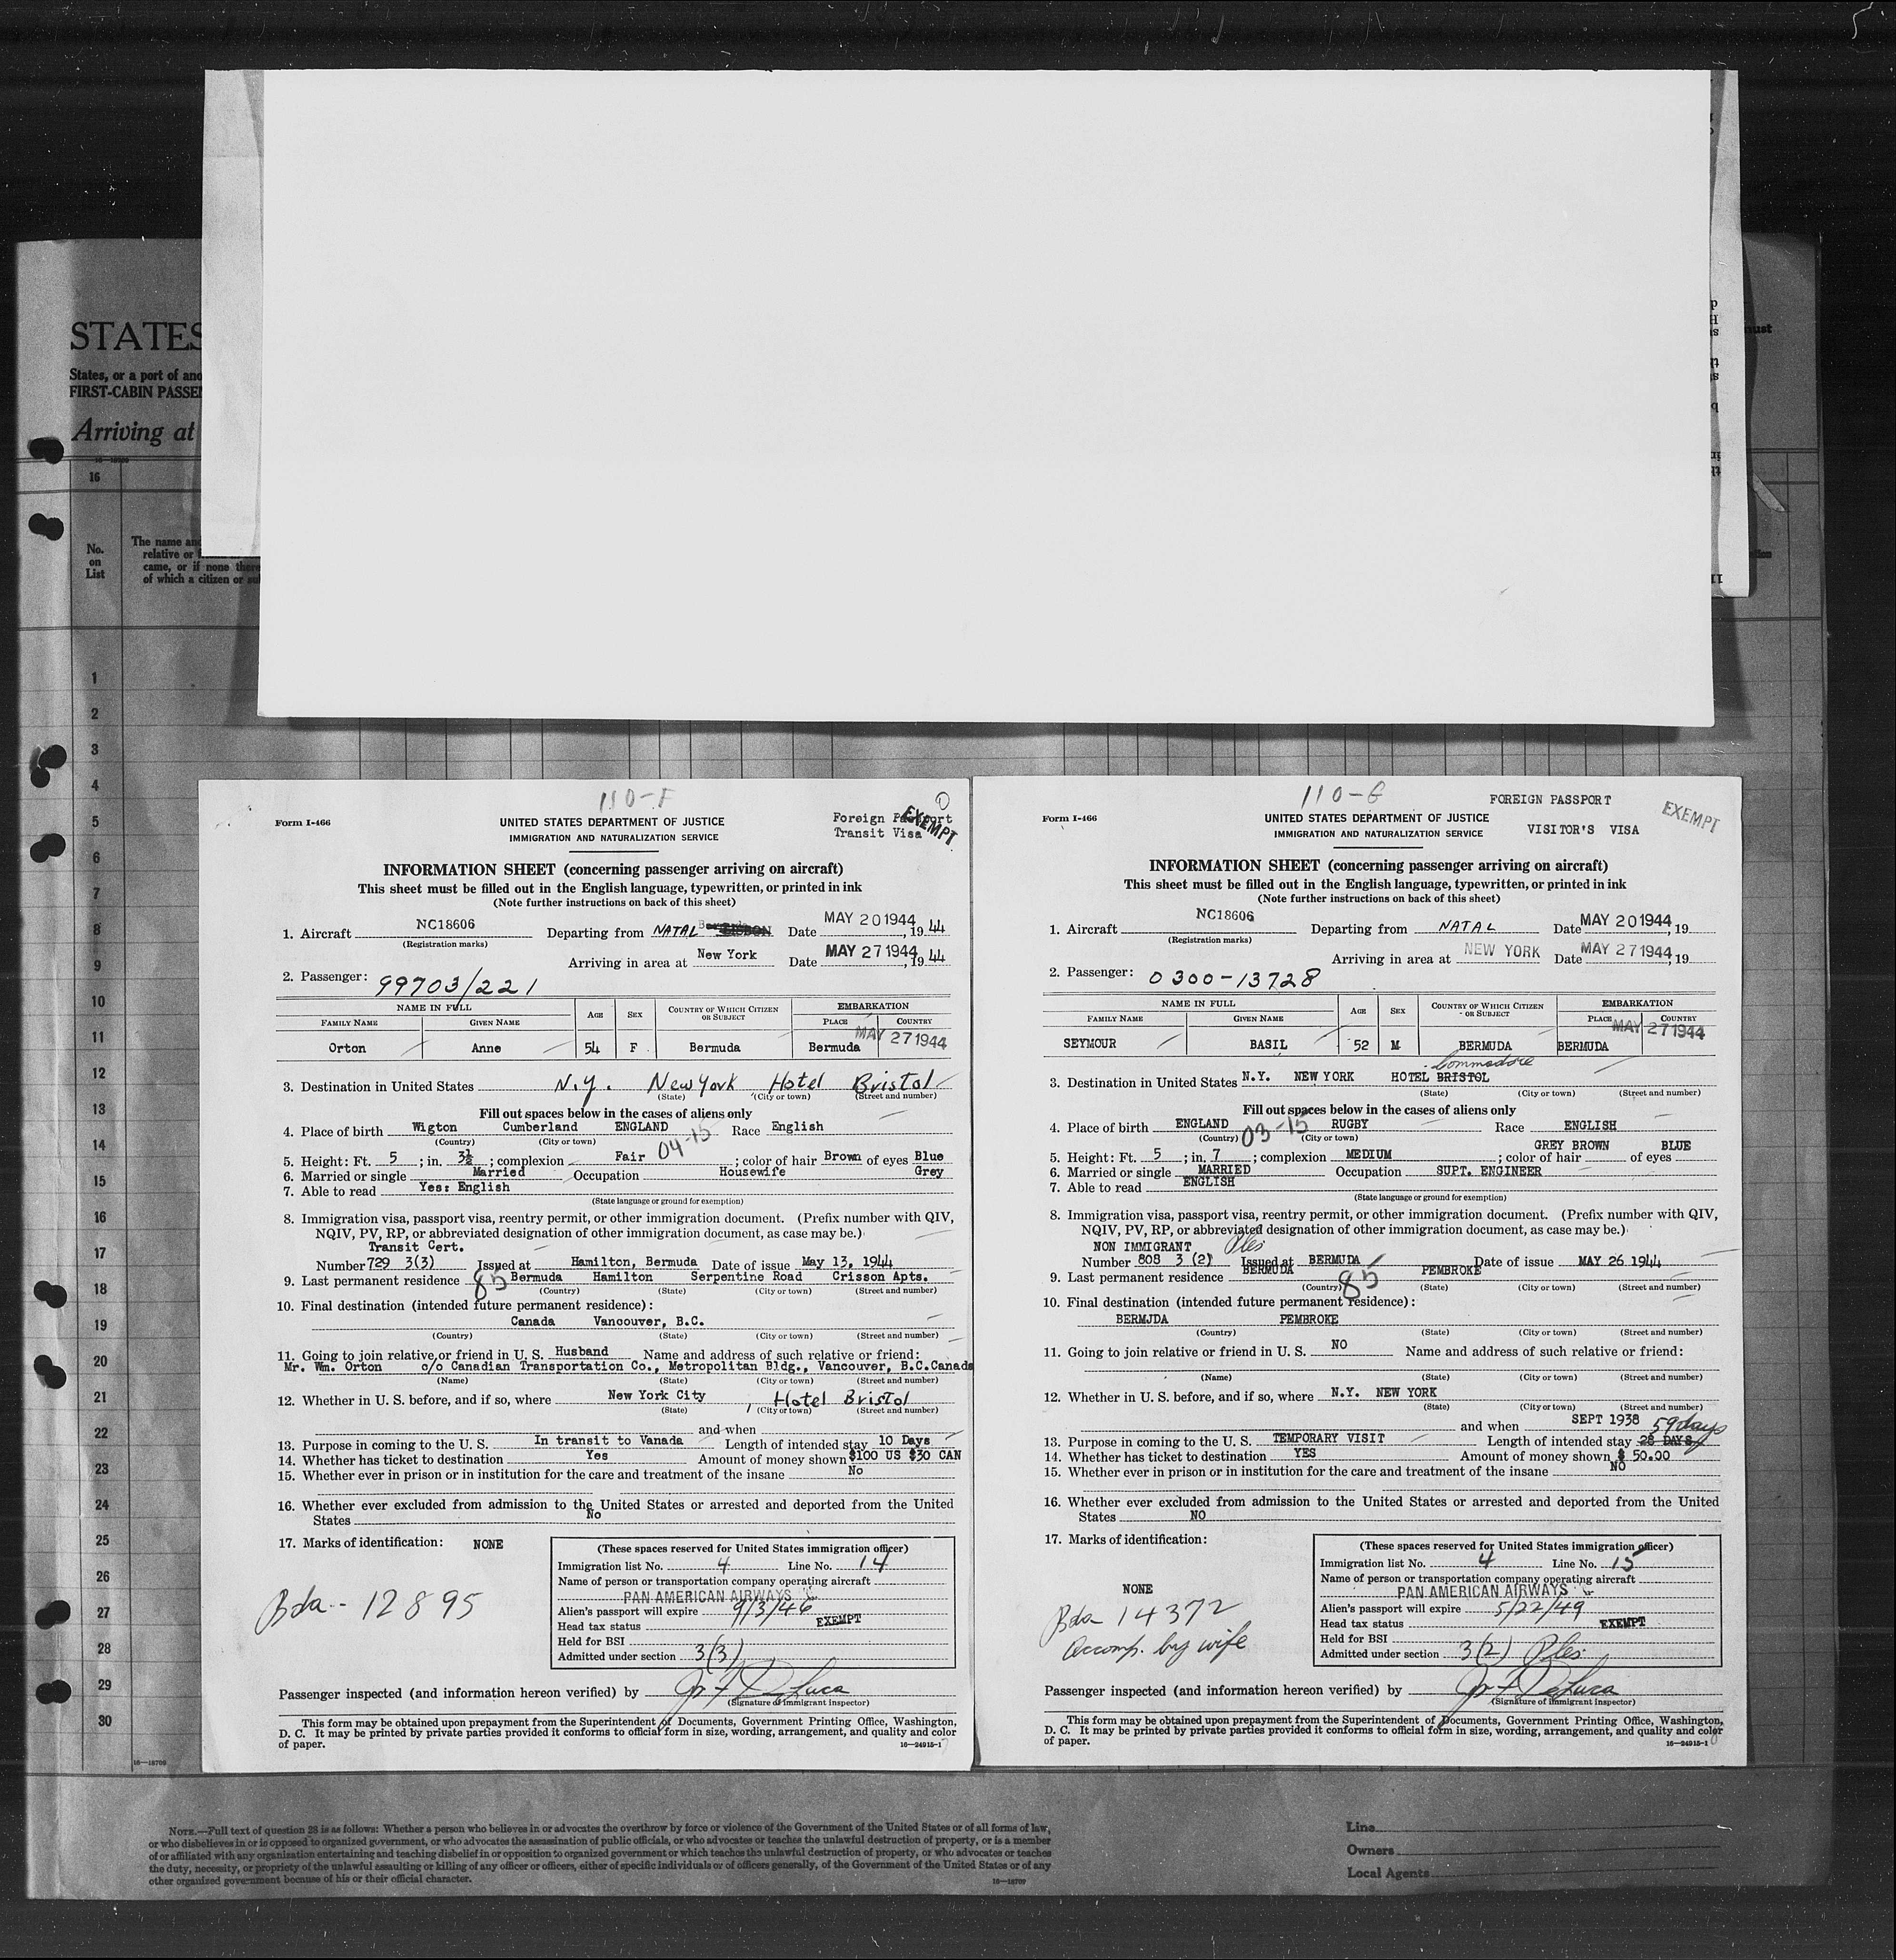 STATES
States, or a port of ano
FIRST-CABIN PASSEN
Arriving at
must
16
No.
on
List
The name and
relative or
came, or if none there
of which a citizen or su
1
2
3
4
5
6
7
8
9
10
11
12
13
14
15
16
17
18
19
20
21
22
23
24
25
26
27
28
29
30
16—18709
110-F
Form I-466
UNITED STATES DEPARTMENT OF JUSTICE
IMMIGRATION AND NATURALIZATION SERVICE
Foreign Passport
Transit Visa
EXEMPT
INFORMATION SHEET (concerning passenger arriving on aircraft)
This sheet must be filled out in the English language, typewritten, or printed in ink
(Note further instructions on back of this sheet)
1. Aircraft NC18606 Departing from NATAL Date MAY 20 1944, 19 44
(Registration marks)
Arriving in area at New York Date MAY 27 1944, 19 44
2. Passenger: 99703/221
NAME IN FULL AGE SEX COUNTRY OF WHICH CITIZEN OR SUBJECT EMBARKATION
FAMILY NAME GIVEN NAME PLACE COUNTRY
MAY 27 1944
Orton Anne 54 F Bermuda Bermuda
3. Destination in United States N.Y. New York Hotel Bristol
(State) (City or town) (Street and number)
Fill out spaces below in the cases of aliens only
4. Place of birth Wigton Cumberland ENGLAND Race English
(Country) (City or town) 04-15
5. Height: Ft. 5 ; in. 3½ ; complexion Fair ; color of hair Brown of eyes Blue
6. Married or single Married Occupation Housewife Grey
7. Able to read Yes: English
(State language or ground for exemption)
8. Immigration visa, passport visa, reentry permit, or other immigration document. (Prefix number with QIV,
NQIV, PV, RP, or abbreviated designation of other immigration document, as case may be.)
Transit Cert.
Number 729 3(3) Issued at Hamilton, Bermuda Date of issue May 13, 1944
9. Last permanent residence 85 Bermuda Hamilton Serpentine Road Crisson Apts.
(Country) (State) (City or town) (Street and number)
10. Final destination (intended future permanent residence):
Canada Vancouver, B.C.
(Country) (State) (City or town) (Street and number)
11. Going to join relative or friend in U. S. Husband Name and address of such relative or friend:
Mr. Wm. Orton c/o Canadian Transportation Co., Metropolitan Bldg., Vancouver, B.C. Canada
(Name) (State) (City or town) (Street and number)
12. Whether in U. S. before, and if so, where New York City , Hotel Bristol
(State) (City or town) (Street and number)
and when
13. Purpose in coming to the U. S. In transit to Vanada Length of intended stay 10 Days
14. Whether has ticket to destination Yes Amount of money shown $100 US $30 CAN
15. Whether ever in prison or in institution for the care and treatment of the insane No
16. Whether ever excluded from admission to the United States or arrested and deported from the United
States No
17. Marks of identification: NONE
Bda - 12895
(These spaces reserved for United States immigration officer)
Immigration list No. 4 Line No. 14
Name of person or transportation company operating aircraft
PAN AMERICAN AIRWAYS
Alien's passport will expire 9/3/46
Head tax status EXEMPT
Held for BSI
Admitted under section 3(3)
Passenger inspected (and information hereon verified) by
(Signature of immigrant inspector)
This form may be obtained upon prepayment from the Superintendent of Documents, Government Printing Office, Washington,
D. C. It may be printed by private parties provided it conforms to official form in size, wording, arrangement, and quality and color
of paper.
16—24915-1
110-G
Form I-466
UNITED STATES DEPARTMENT OF JUSTICE
IMMIGRATION AND NATURALIZATION SERVICE
FOREIGN PASSPORT
VISITOR'S VISA
EXEMPT
INFORMATION SHEET (concerning passenger arriving on aircraft)
This sheet must be filled out in the English language, typewritten, or printed in ink
(Note further instructions on back of this sheet)
1. Aircraft NC18606 Departing from NATAL Date MAY 20 1944, 19
(Registration marks)
Arriving in area at NEW YORK Date MAY 27 1944, 19
2. Passenger: 0300-13728
NAME IN FULL AGE SEX COUNTRY OF WHICH CITIZEN OR SUBJECT EMBARKATION
FAMILY NAME GIVEN NAME PLACE COUNTRY
MAY 27 1944
SEYMOUR BASIL 52 M BERMUDA BERMUDA
Commodore
3. Destination in United States N.Y. NEW YORK HOTEL BRISTOL
(State) (City or town) (Street and number)
Fill out spaces below in the cases of aliens only
4. Place of birth ENGLAND RUGBY Race ENGLISH
(Country) 03-15 (City or town)
GREY BROWN BLUE
5. Height: Ft. 5 ; in. 7 ; complexion MEDIUM ; color of hair of eyes
6. Married or single MARRIED Occupation SUPT. ENGINEER
7. Able to read ENGLISH
(State language or ground for exemption)
8. Immigration visa, passport visa, reentry permit, or other immigration document. (Prefix number with QIV,
NQIV, PV, RP, or abbreviated designation of other immigration document, as case may be.)
NON IMMIGRANT
Number 808 3 (2) Issued at BERMUDA Date of issue MAY 26 1944
9. Last permanent residence BERMUDA 85 PEMBROKE
(Country) (State) (City or town) (Street and number)
10. Final destination (intended future permanent residence):
BERMJDA PEMBROKE
(Country) (State) (City or town) (Street and number)
11. Going to join relative or friend in U. S. NO Name and address of such relative or friend:
(Name) (State) (City or town) (Street and number)
12. Whether in U. S. before, and if so, where N.Y. NEW YORK
(State) (City or town) (Street and number)
and when SEPT 1938 59 days
13. Purpose in coming to the U. S. TEMPORARY VISIT Length of intended stay 28 DAYS
14. Whether has ticket to destination YES Amount of money shown $ 50.00
15. Whether ever in prison or in institution for the care and treatment of the insane NO
16. Whether ever excluded from admission to the United States or arrested and deported from the United
States NO
17. Marks of identification:
NONE
Bda 14372
accomp. by wife
(These spaces reserved for United States immigration officer)
Immigration list No. 4 Line No. 15
Name of person or transportation company operating aircraft
PAN AMERICAN AIRWAYS
Alien's passport will expire 5/22/49
Head tax status EXEMPT
Held for BSI
Admitted under section 3(2)
Passenger inspected (and information hereon verified) by
(Signature of immigrant inspector)
This form may be obtained upon prepayment from the Superintendent of Documents, Government Printing Office, Washington,
D. C. It may be printed by private parties provided it conforms to official form in size, wording, arrangement, and quality and color
of paper.
16—24915-1
NOTE.—Full text of question 28 is as follows: Whether a person who believes in or advocates the overthrow by force or violence of the Government of the United States or of all forms of law,
or who disbelieves in or is opposed to organized government, or who advocates the assassination of public officials, or who advocates or teaches the unlawful destruction of property, or is a member
of or affiliated with any organization entertaining and teaching disbelief in or opposition to organized government or which teaches the unlawful destruction of property, or who advocates or teaches
the duty, necessity, or propriety of the unlawful assaulting or killing of any officer or officers, either of specific individuals or of officers generally, of the Government of the United States or of any
other organized government because of his or their official character.
16—18709
Line
Owners
Local Agents